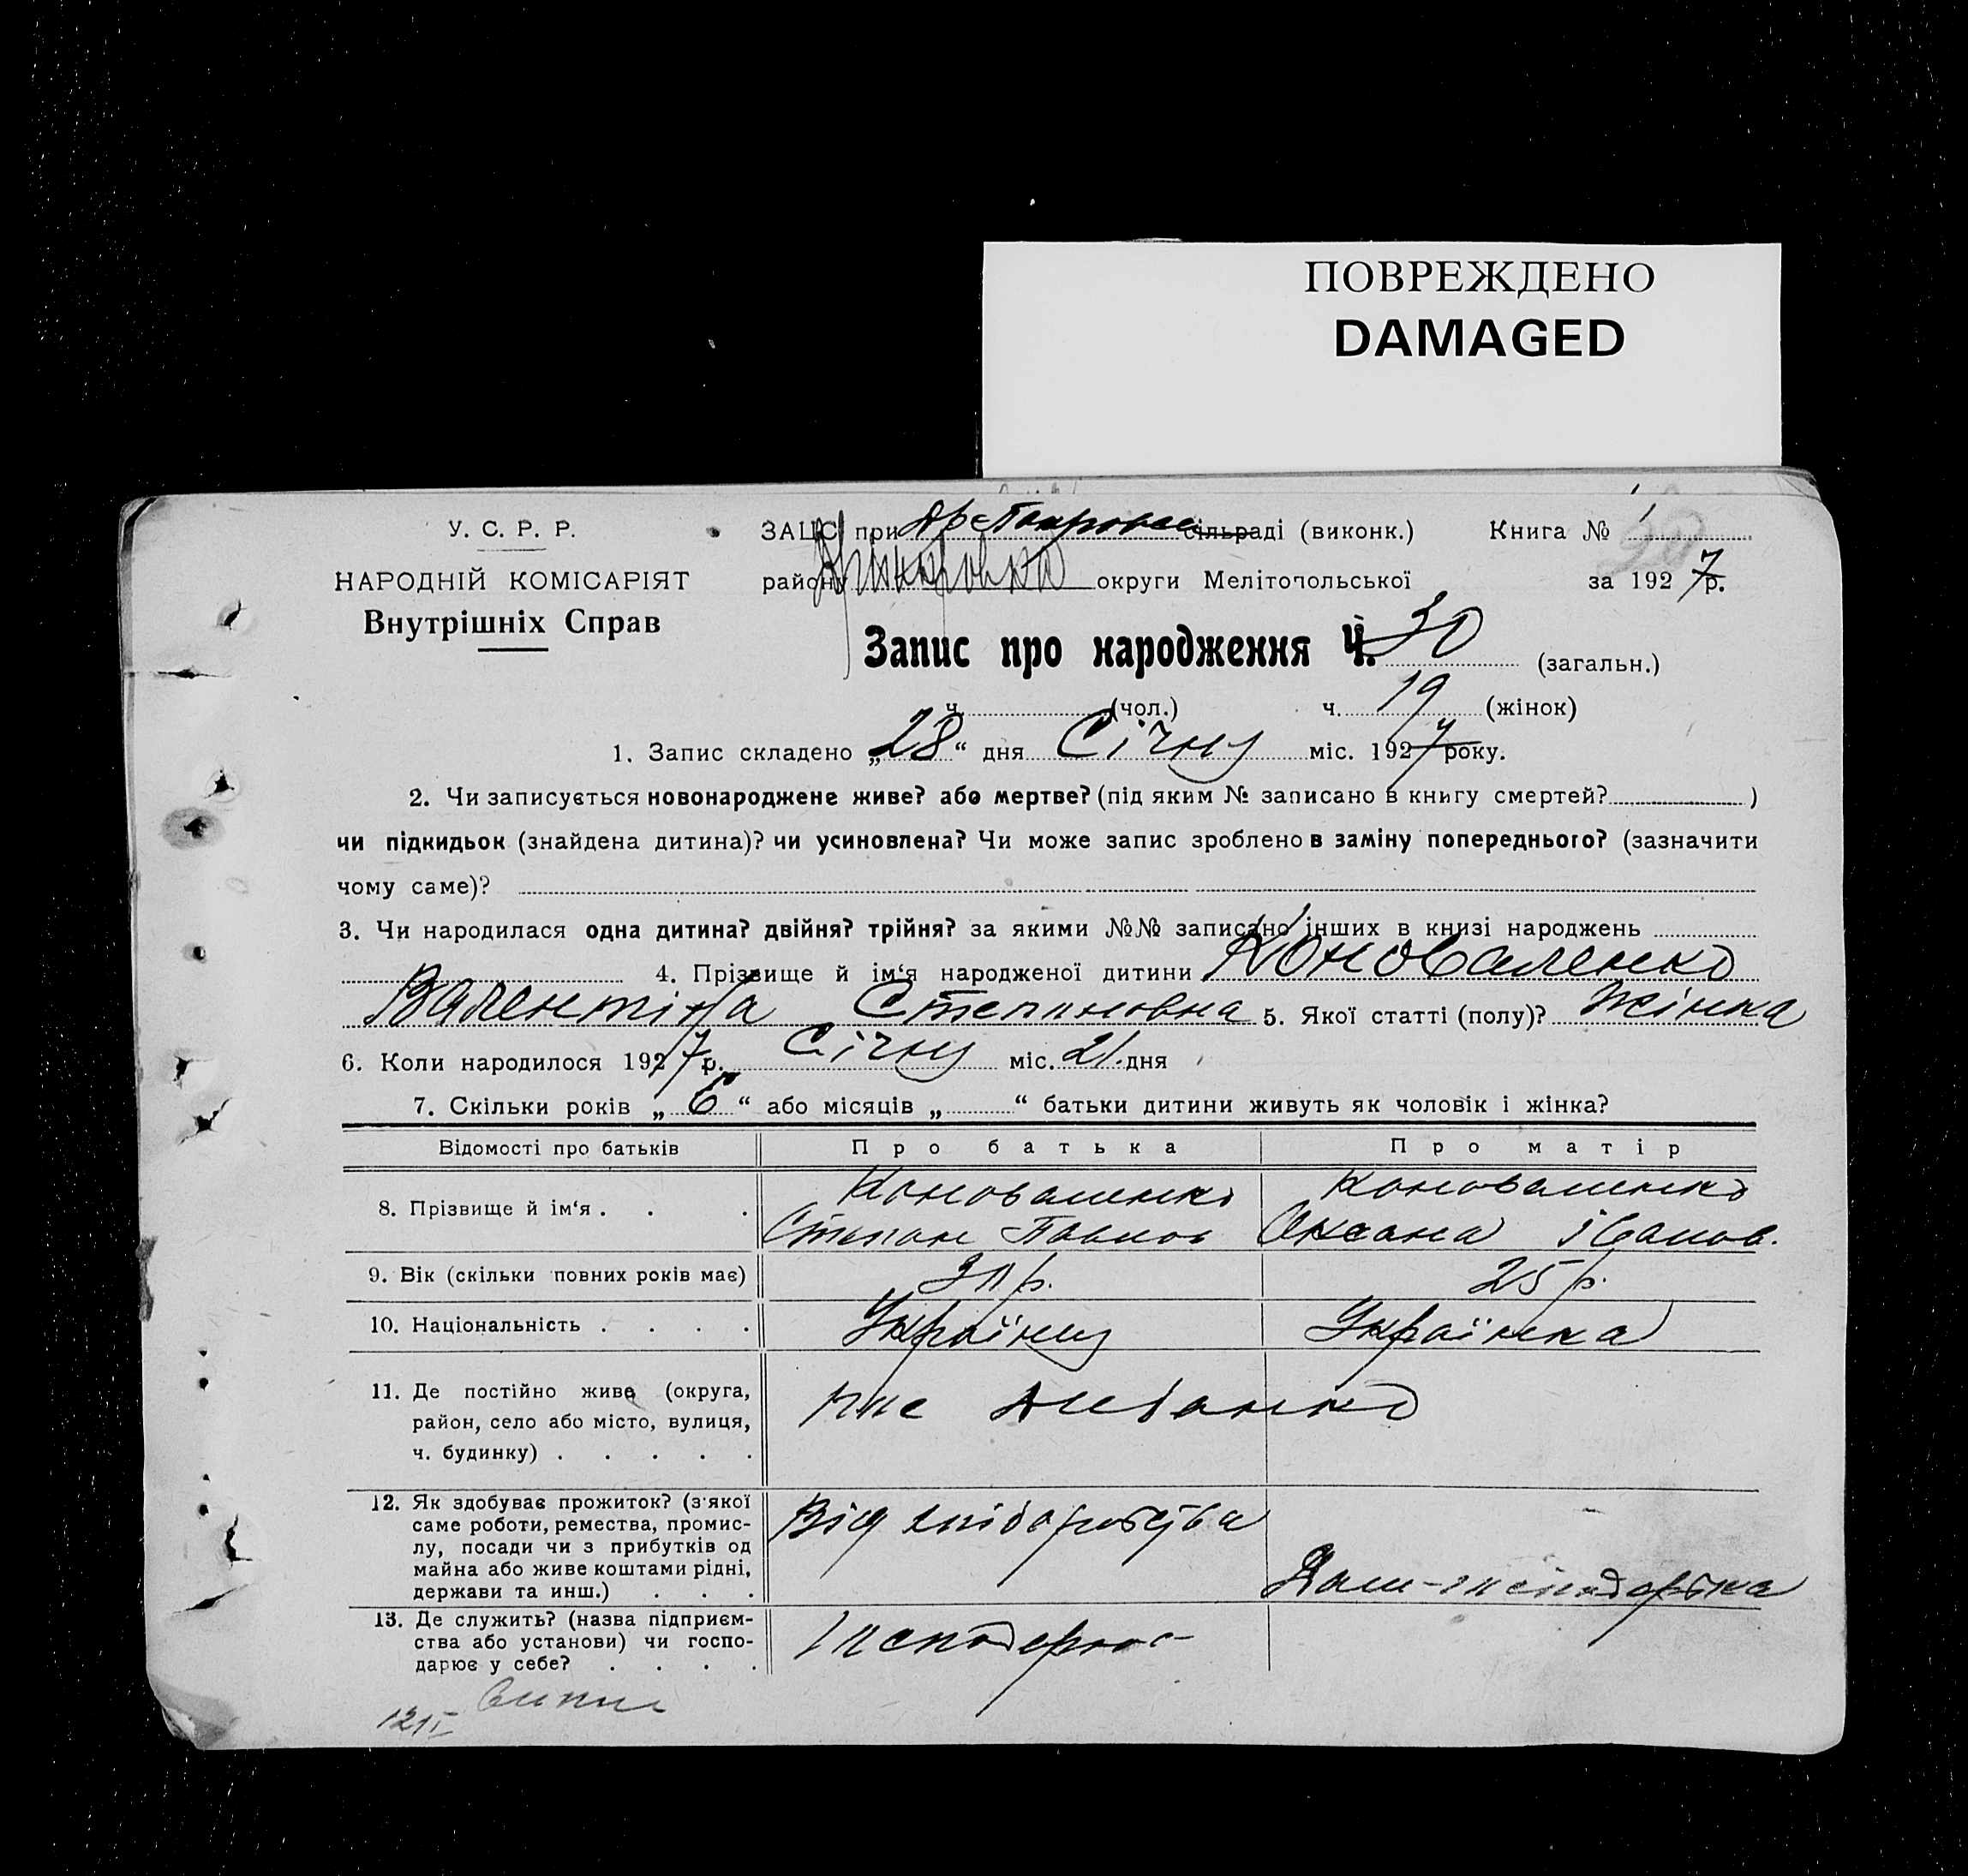 ПОВРЕЖДЕНО
DAMAGED
У. С. Р. Р.
НАРОДНІЙ КОМІСАРІЯТ
Внутрішніх Справ
ЗАЦС при сільраді (виконк.) Книга № 1
району округи Мелітопольської за 1927 р.
Запис про народження Ч. 30 (загальн.)
ч. (чол.) ч. 19 (жінок)
1. Запис складено „28“ дня Січну міс. 1927 року.
2. Чи записується новонароджене живе? або мертве? (під яким № записано в книгу смертей? )
чи підкидьок (знайдена дитина)? чи усиновлена? Чи може запис зроблено в заміну попереднього? (зазначити
чому саме)?
3. Чи народилася одна дитина? двійня? трійня? за якими №№ записано інших в книзі народжень
4. Прізвище й ім‘я народженої дитини Коноваленко
Валентіна Степановна 5. Якої статті (полу)? Жінка
6. Коли народилося 1927 р. Січну міс. 21 дня
7. Скільки років „6“ або місяців „ “ батьки дитини живуть як чоловік і жінка?
Відомості про батьків Про батька Про матір
8. Прізвище й ім‘я . . . Коноваленко Степан Павлов Коноваленко Оксана Іванов.
9. Вік (скільки повних років має) 25 р.
10. Національність . . . . Українец Українка
11. Де постійно живе (округа,
район, село або місто, вулиця,
ч. будинку) . . . . .
12. Як здобуває прожиток? (з‘якої
саме роботи, ремества, промис-
лу, посади чи з прибутків од
майна або живе коштами рідні,
держави та инш.) . . .
Від хліборобства
Дом-господарка
13. Де служить? (назва підприєм-
ства або установи) чи госпо-
дарює у себе? . . . .